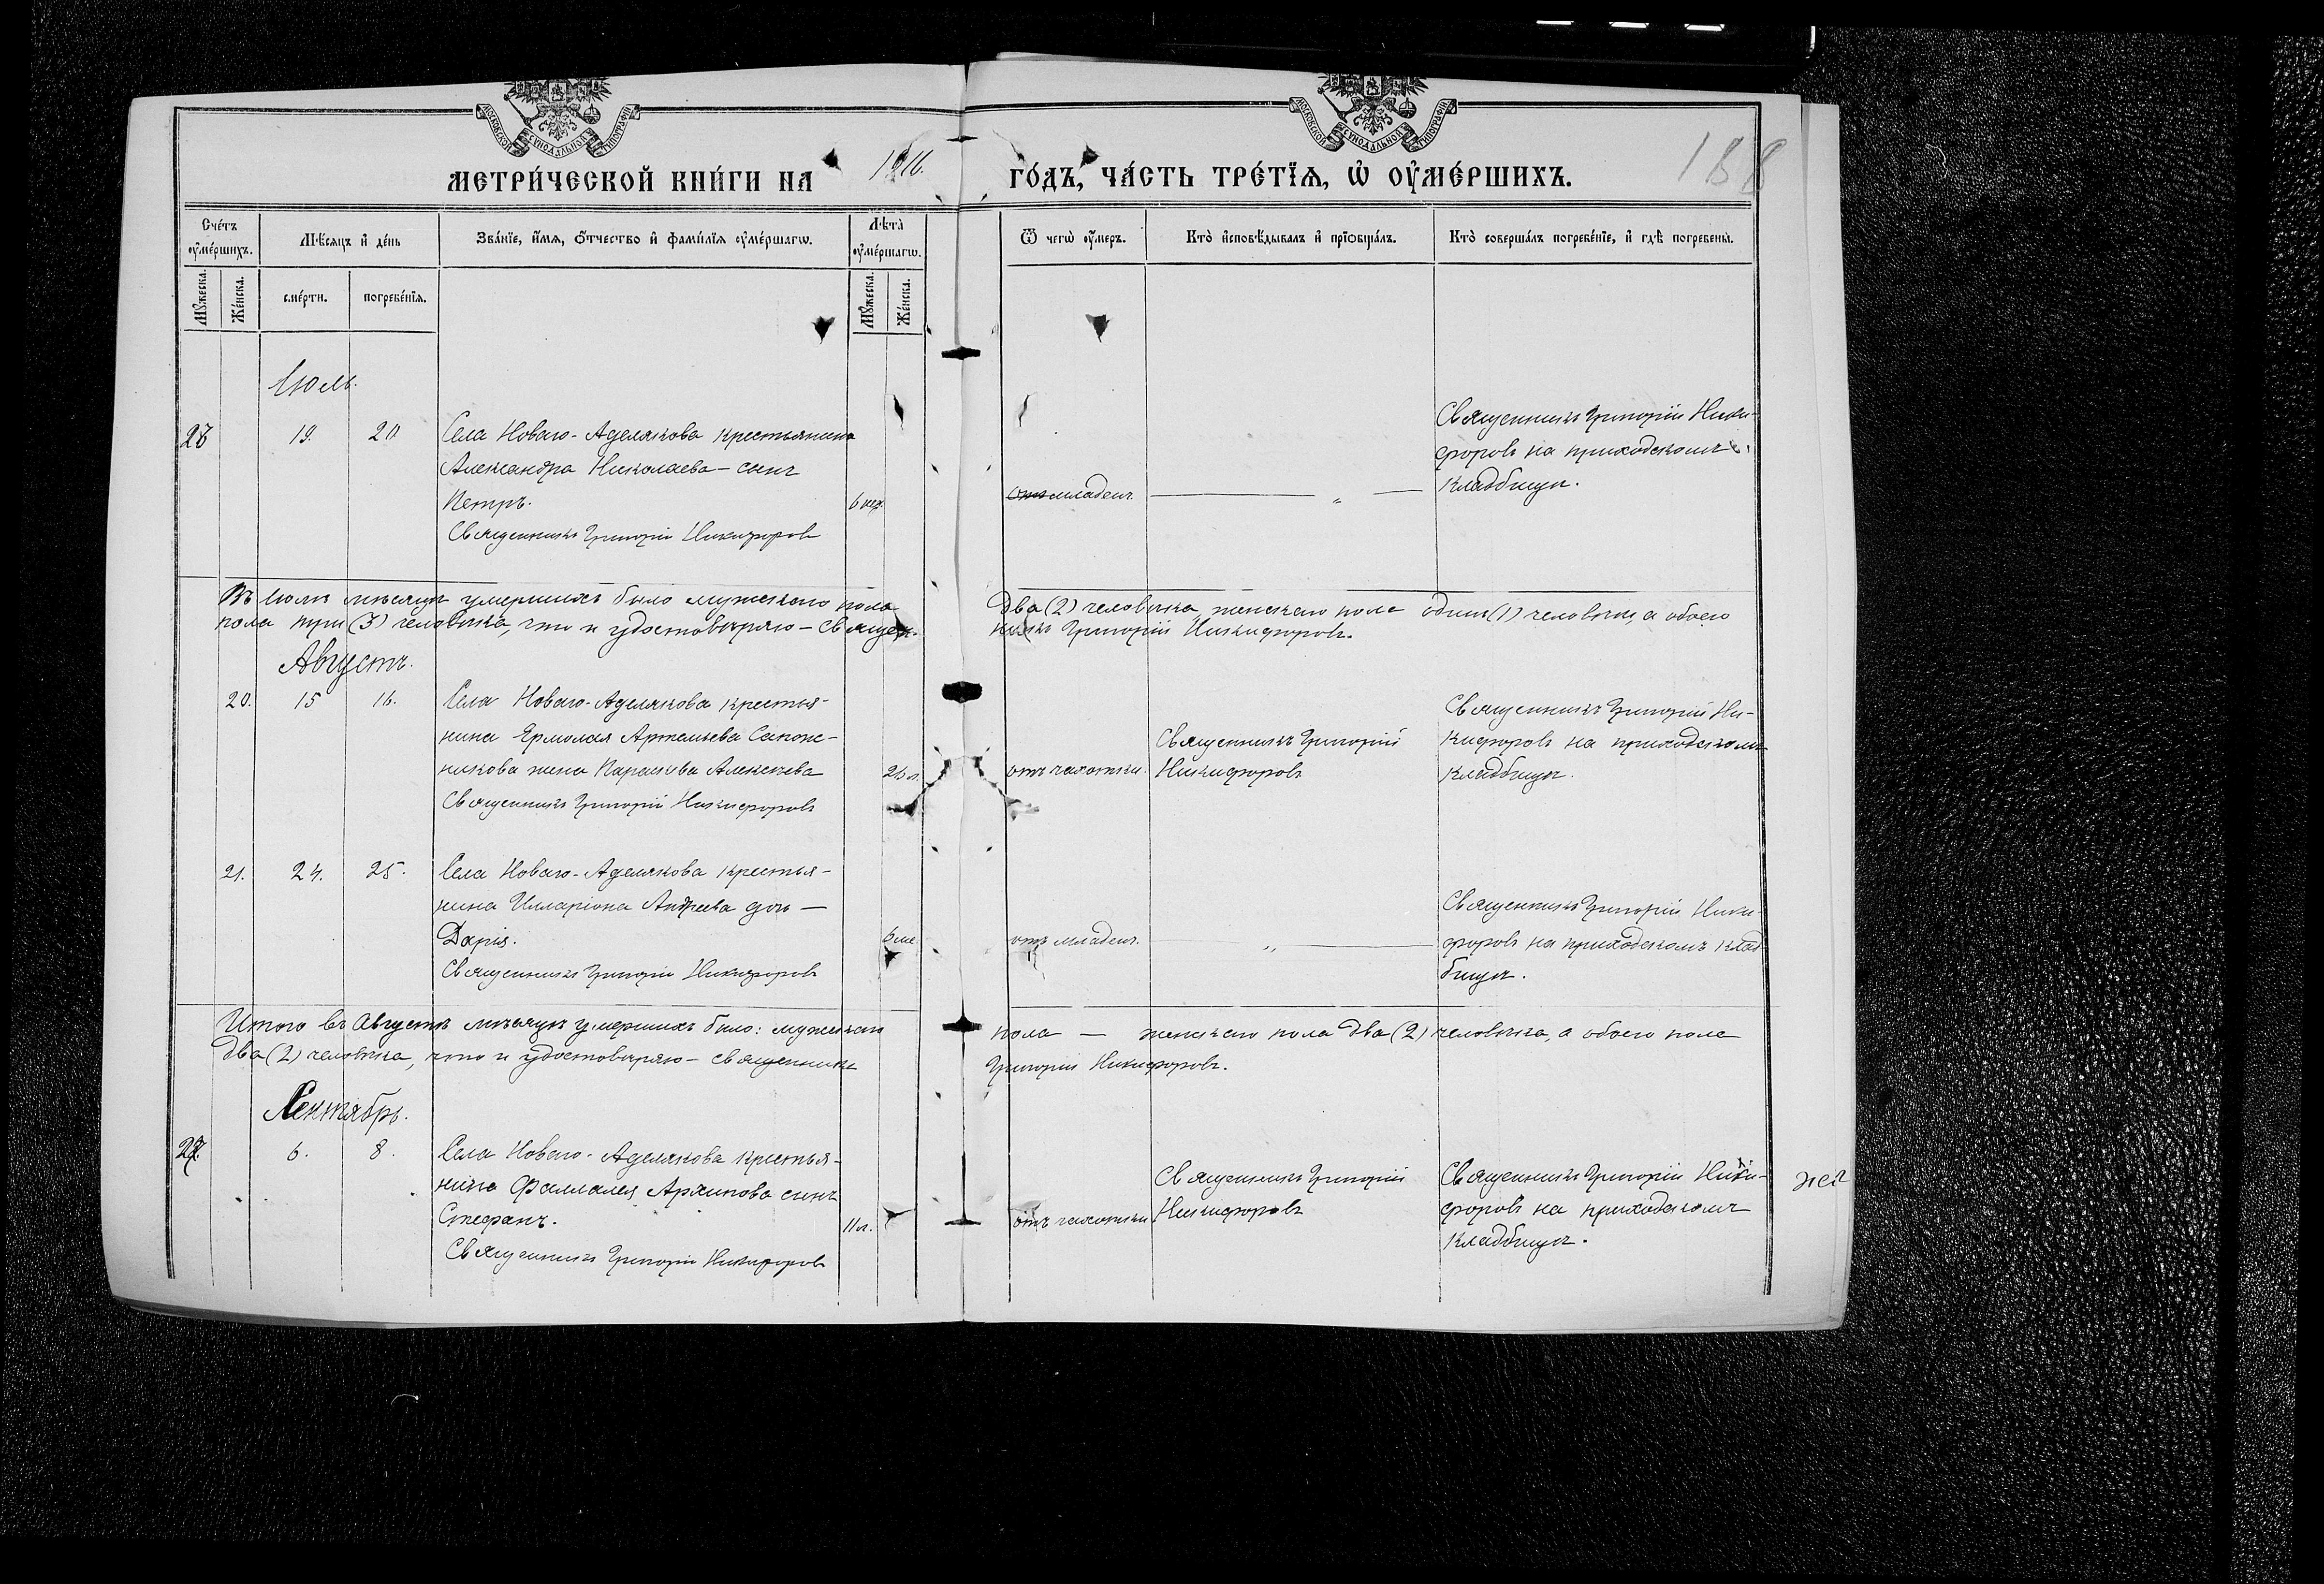 МОСКОВСКОЙ СѴНОДАЛЬНОЙ ТИПОГРАФІИ
МОСКОВСКОЙ СѴНОДАЛЬНОЙ ТИПОГРАФІИ
МЕТРИ́ЧЕСКОЙ КНИ́ГИ НА 1916. ГО́ДЪ, ЧА́СТЬ ТРЕ́ТЇѦ, Ѡ҆ ОУ҆МЕ́РШИХЪ.
188
Сче́тъ оу҆ме́ршихъ.
Мѣ́сяцъ и҆ де́нь
Зва́нїе, и҆́мя, ѻ҆́тчество и҆ фами́лїя оу҆ме́ршагѡ.
Лѣ́та оу҆ме́ршагѡ.
Ѿ чегѡ̀ оу҆́меръ.
Кто̀ и҆сповѣ́дывалъ и҆ прїѡбща́лъ.
Кто̀ соверша́лъ погребе́нїе, и҆ гдѣ̀ погребены̀.
Мꙋ́жеска.
Же́нска.
сме́рти.
погребе́нїя.
Мꙋ́жеска.
Же́нска.
Іюль.
19. 20 Села Новаго-Аделякова крестьянина
Александра Николаева - сынъ
Петръ. 6 нед.
Священникъ Григорій Никифоровъ
младен. — „ —
Священникъ Григорій Ники-
форовъ на приходскомъ
кладбищѣ.
Въ Іюлѣ мѣсяцѣ умершихъ было мужескаго пола два (2) человѣка, женскаго пола одинъ (1) человѣкъ, а обоего
пола три (3) человѣка, что и удостовѣряю - священникъ Григорій Никифоровъ.
Августъ.
20. 15 16. Села Новаго-Аделякова крестья-
нина Ермолая Артемьева Сапож-
никова жена Параскева Алексѣева
Священникъ Григорій Никифоровъ
отъ чахотки.
Священникъ Григорій
Никифоровъ
Священникъ Григорій Ни-
кифоровъ на приходскомъ
кладбищѣ.
21. 24. 25. Села Новаго-Аделякова крестья-
нина Илларіона Андреева дочь —
Дарія. 6 ме.
Священникъ Григорій Никифоровъ
отъ младен. — „ —
Священникъ Григорій Ники-
форовъ на приходскомъ клад-
бищѣ.
Итого въ Августѣ мѣсяцѣ умершихъ было: мужескаго пола — женскаго пола два (2) человѣка, а обоего пола
два (2) человѣка, что и удостовѣряю - священникъ Григорій Никифоровъ.
Сентябрь.
6. 8. Села Новаго-Аделякова крестья-
нина Фалалея Архипова сынъ
Стефанъ. 11 л.
Священникъ Григорій Никифоровъ
отъ чахотки
Священникъ Григорій
Никифоровъ
Священникъ Григорій Ники-
форовъ на приходскомъ
кладбищѣ.